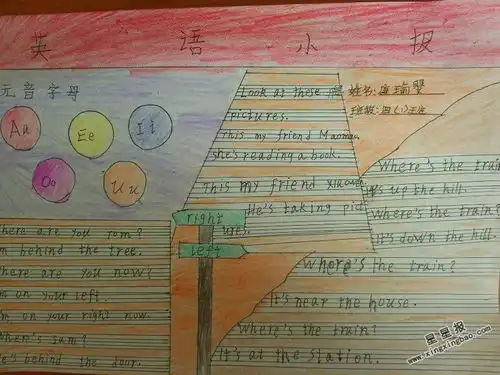 英 语 小 报
元音字母
Aa
Ee
Ii
Oo
Uu
Look at these
pictures.
This my friend Maomao.
she's reading a book.
This my friend xiao
He's taking pict
ures.
姓名:
班级:四(1)班
right
left
here are you Tom?
m behind the tree.
here are you now?
m on your left.
m on your right now.
Where's Sam?
He's behind the door.
Where's the train
It's up the hill.
Where's the train?
It's down the hill.
Where's the train?
It's near the house.
Where's the train?
It's at the Station.
星星报
www.xingxingbao.com